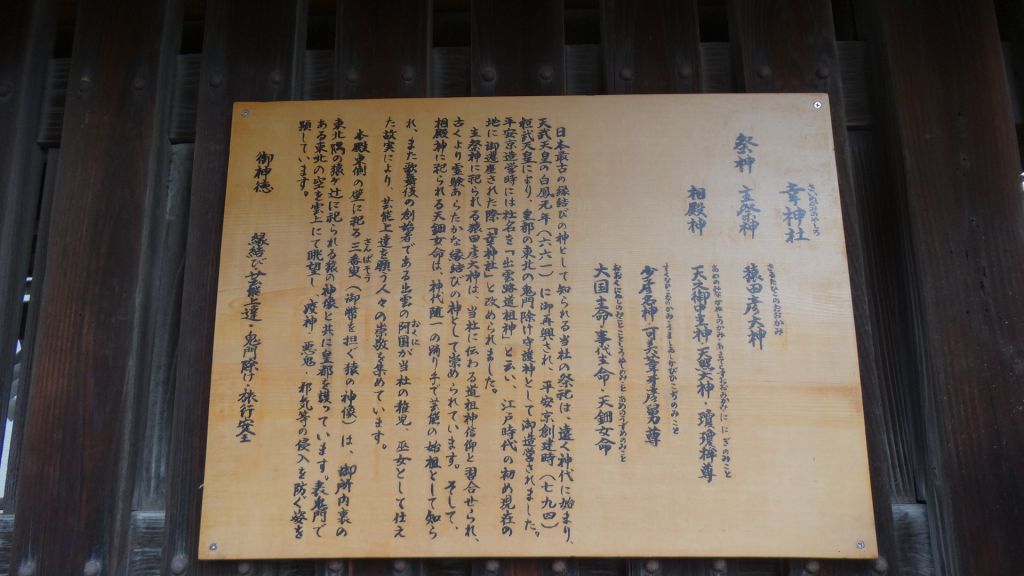 さいのかみのやしろ
幸神社
祭神 主祭神
さるたひこのおおかみ
猿田彦大神
相殿神
あめのみなかぬしのかみ・あまてらすおおみかみ・ににぎのみこと
天之御中主神・天照大神・瓊瓊杵尊
少彦名神・可美葦牙彦舅尊
おおくにぬしのみこと・ことしろぬしのみこと・あめのうずめのみこと
大国主命・事代主命・天鈿女命
日本最古の縁結びの神として知られる当社の祭祀は、遠く神代に始まり、
天武天皇の白鳳元年(六六一)に御再興され、平安京創建時(七九四)
桓武天皇により、皇都の東北の鬼門除け守護神として御造営されました。
平安京造営時には社名を「出雲路道祖神」と云い、江戸時代の初め現在の
地に御遷座された際「幸神社」と改められました。
主祭神に祀られる猿田彦大神は、当社に伝わる道祖神信仰と習合せられ、
古くより霊験あらたかな縁結びの神として崇められています。そして、
相殿神に祀られる天鈿女命は、神代随一の踊り子で芸能の始祖として知ら
れ、また歌舞伎の創始者である出雲の阿国が当社の稚児、巫女として仕え
おくに
た故実により、芸能上達を願う人々の崇敬を集めています。
さんばそう
本殿東側の壁に祀る三番叟(御幣を担ぐ猿の神像)は、御所内裏の
東北隅の猿ヶ辻に祀られる猿の神像と共に皇都を護っています。表鬼門で
ある東北の空を雲上にて眺望し、疫神、悪鬼、邪気等の侵入を防ぐ姿を
顕しています。
御神徳 縁結び・芸能上達・鬼門除け・旅行安全